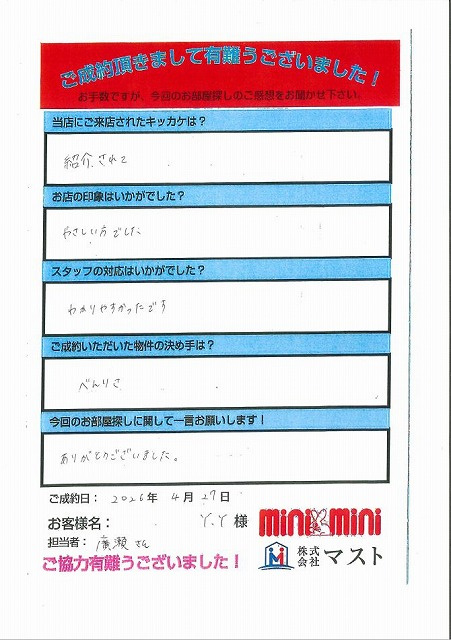 ご成約頂きまして有難うございました！
お手数ですが、今回のお部屋探しのご感想をお聞かせ下さい。
当店にご来店されたキッカケは？
紹介されて
お店の印象はいかがでした？
やさしい方でした
スタッフの対応はいかがでした？
わかりやすかったです
ご成約いただいた物件の決め手は？
べんりさ
今回のお部屋探しに関して一言お願いします！
ありがとうございました。
ご成約日： 2026年 4月 27日
お客様名： Y.Y 様
担当者： 廣瀬さん
mini mini
株式会社 マスト
ご協力有難うございました！